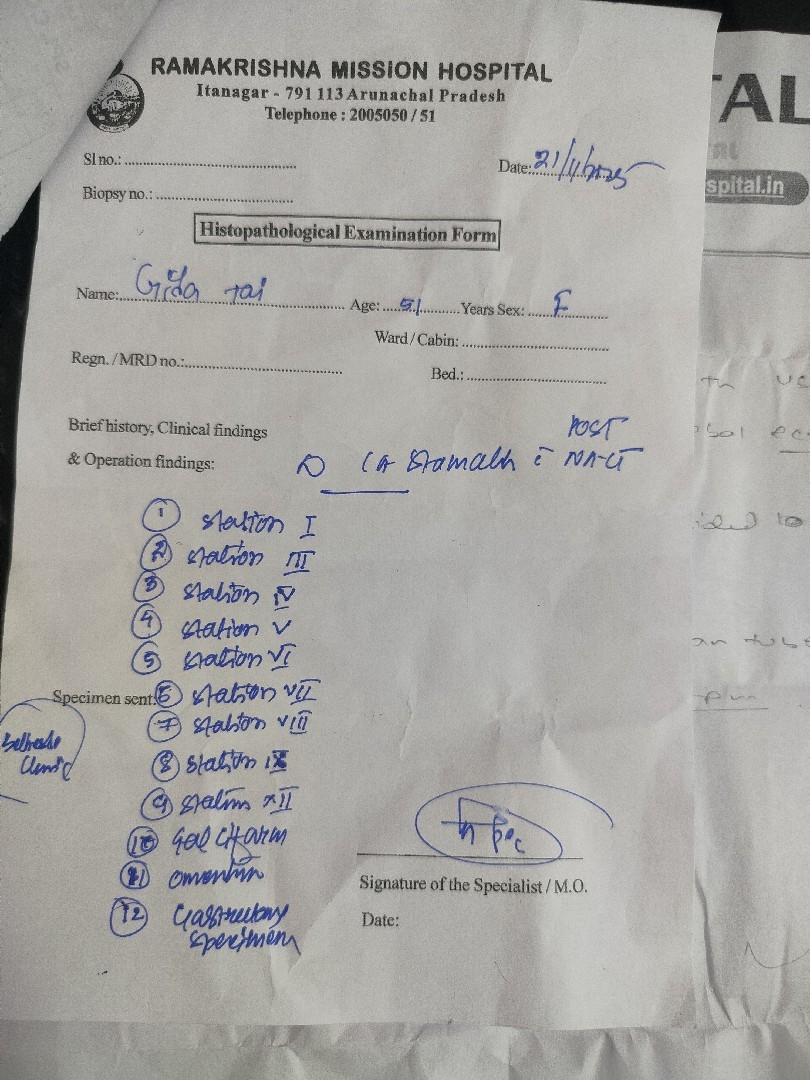 RAMAKRISHNA MISSION HOSPITAL
Itanagar - 791 113 Arunachal Pradesh
Telephone : 2005050 / 51
Sl no.:
Date: 21/11/2025
Biopsy no.:
Histopathological Examination Form
Name: Gida Tai Age: 51 Years Sex: F
Ward / Cabin:
Regn. / MRD no.:
Bed.:
Brief history, Clinical findings
& Operation findings:
POST
CA Stomach c̄ NACT
1 Station I
2 Station III
3 Station IV
4 Station V
5 Station VI
Specimen sent: 6 Station VII
7 Station VIII
8 Station IX
9 Station XII
10
11 Omentum
12 Gastrectomy
Specimen
Clinic
Signature of the Specialist / M.O.
Date:
TAL
spital.in